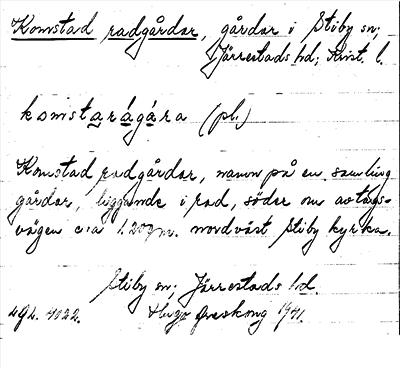 Komstad radgårdar, gårdar i Stiby sn;
Järrestads hd; Krist. l.
komstarágára (pl.)
Komstad radgårdar, namn på en samling
gårdar, liggande i rad, söder om avtags-
vägen c:a 1.200 m. nordväst Stiby kyrka.
Stiby sn; Järrestads hd.
4942. 4022. Hugo Areskoug 1941.